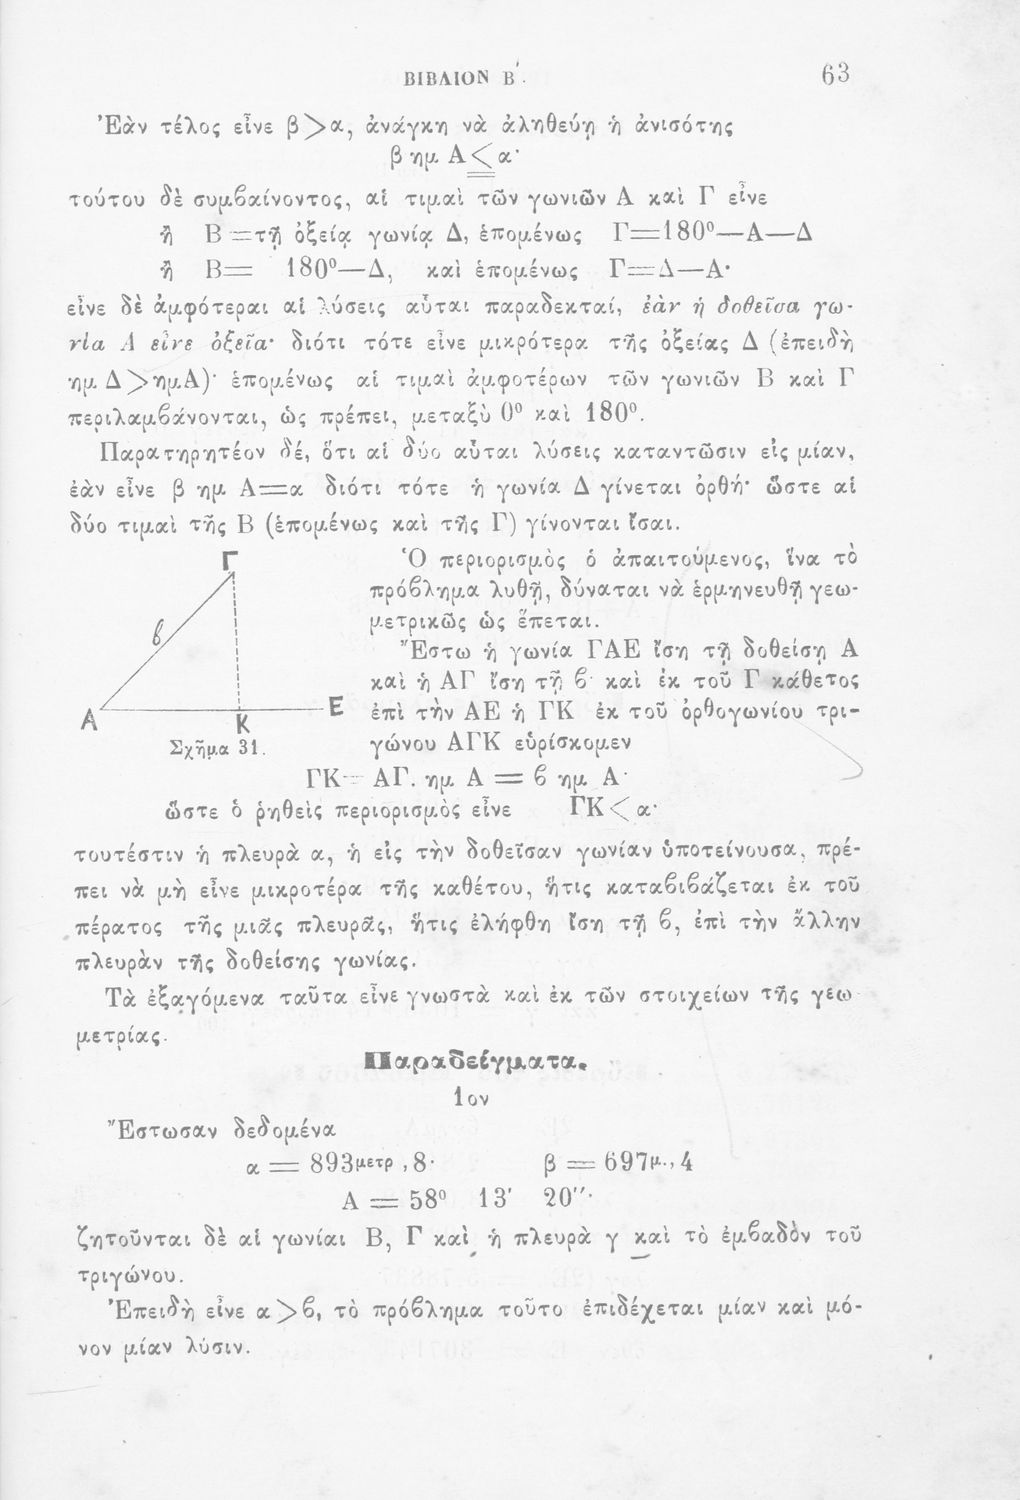 ΒΙΒΛΙΟΝ Β΄. 63
Ἐὰν τέλος εἶνε β>α, ἀνάγκη νὰ ἀληθεύῃ ἡ ἀνισότης
β ημ Α ≦ α·
τούτου δὲ συμβαίνοντος, αἱ τιμαὶ τῶν γωνιῶν Α καὶ Γ εἶνε
ἢ Β=τῇ ὀξείᾳ γωνίᾳ Δ, ἑπομένως Γ=180°—Α—Δ
ἢ Β= 180°—Δ, καὶ ἑπομένως Γ=Δ—Α·
εἶνε δὲ ἀμφότεραι αἱ λύσεις αὗται παραδεκταί, ἐὰν ἡ δοθεῖσα γω-
νία Α εἶνε ὀξεῖα· διότι τότε εἶνε μικρότερα τῆς ὀξείας Δ (ἐπειδὴ
ημ Δ>ημΑ)· ἑπομένως αἱ τιμαὶ ἀμφοτέρων τῶν γωνιῶν Β καὶ Γ
περιλαμβάνονται, ὡς πρέπει, μεταξὺ 0° καὶ 180°.
Παρατηρητέον δέ, ὅτι αἱ δύο αὗται λύσεις καταντῶσιν εἰς μίαν,
ἐὰν εἶνε β ημ Α=α διότι τότε ἡ γωνία Δ γίνεται ὀρθή· ὥστε αἱ
δύο τιμαὶ τῆς Β (ἑπομένως καὶ τῆς Γ) γίνονται ἴσαι.
Γ
β
Α
Κ
Ε
Σχῆμα 31.
Ὁ περιορισμὸς ὁ ἀπαιτούμενος, ἵνα τὸ
πρόβλημα λυθῇ, δύναται νὰ ἑρμηνευθῇ γεω-
μετρικῶς ὡς ἕπεται.
Ἔστω ἡ γωνία ΓΑΕ ἴση τῇ δοθείσῃ Α
καὶ ἡ ΑΓ ἴση τῇ β· καὶ ἐκ τοῦ Γ κάθετος
ἐπὶ τὴν ΑΕ ἡ ΓΚ ἐκ τοῦ ὀρθογωνίου τρι-
γώνου ΑΓΚ εὑρίσκομεν
ΓΚ = ΑΓ. ημ Α = β ημ Α·
ὥστε ὁ ῥηθεὶς περιορισμὸς εἶνε ΓΚ < α·
τουτέστιν ἡ πλευρὰ α, ἡ εἰς τὴν δοθεῖσαν γωνίαν ὑποτείνουσα, πρέ-
πει νὰ μὴ εἶνε μικροτέρα τῆς καθέτου, ἥτις καταβιβάζεται ἐκ τοῦ
πέρατος τῆς μιᾶς πλευρᾶς, ἥτις ἐλήφθη ἴση τῇ β, ἐπὶ τὴν ἄλλην
πλευρὰν τῆς δοθείσης γωνίας.
Τὰ ἐξαγόμενα ταῦτα εἶνε γνωστὰ καὶ ἐκ τῶν στοιχείων τῆς γεω-
μετρίας.
Παραδείγματα.
1ον
Ἔστωσαν δεδομένα
α = 893μετρ,8· β = 697μ.,4
Α = 58° 13' 20''·
ζητοῦνται δὲ αἱ γωνίαι Β, Γ καὶ ἡ πλευρὰ γ καὶ τὸ ἐμβαδὸν τοῦ
τριγώνου.
Ἐπειδὴ εἶνε α>β, τὸ πρόβλημα τοῦτο ἐπιδέχεται μίαν καὶ μό-
νον μίαν λύσιν.